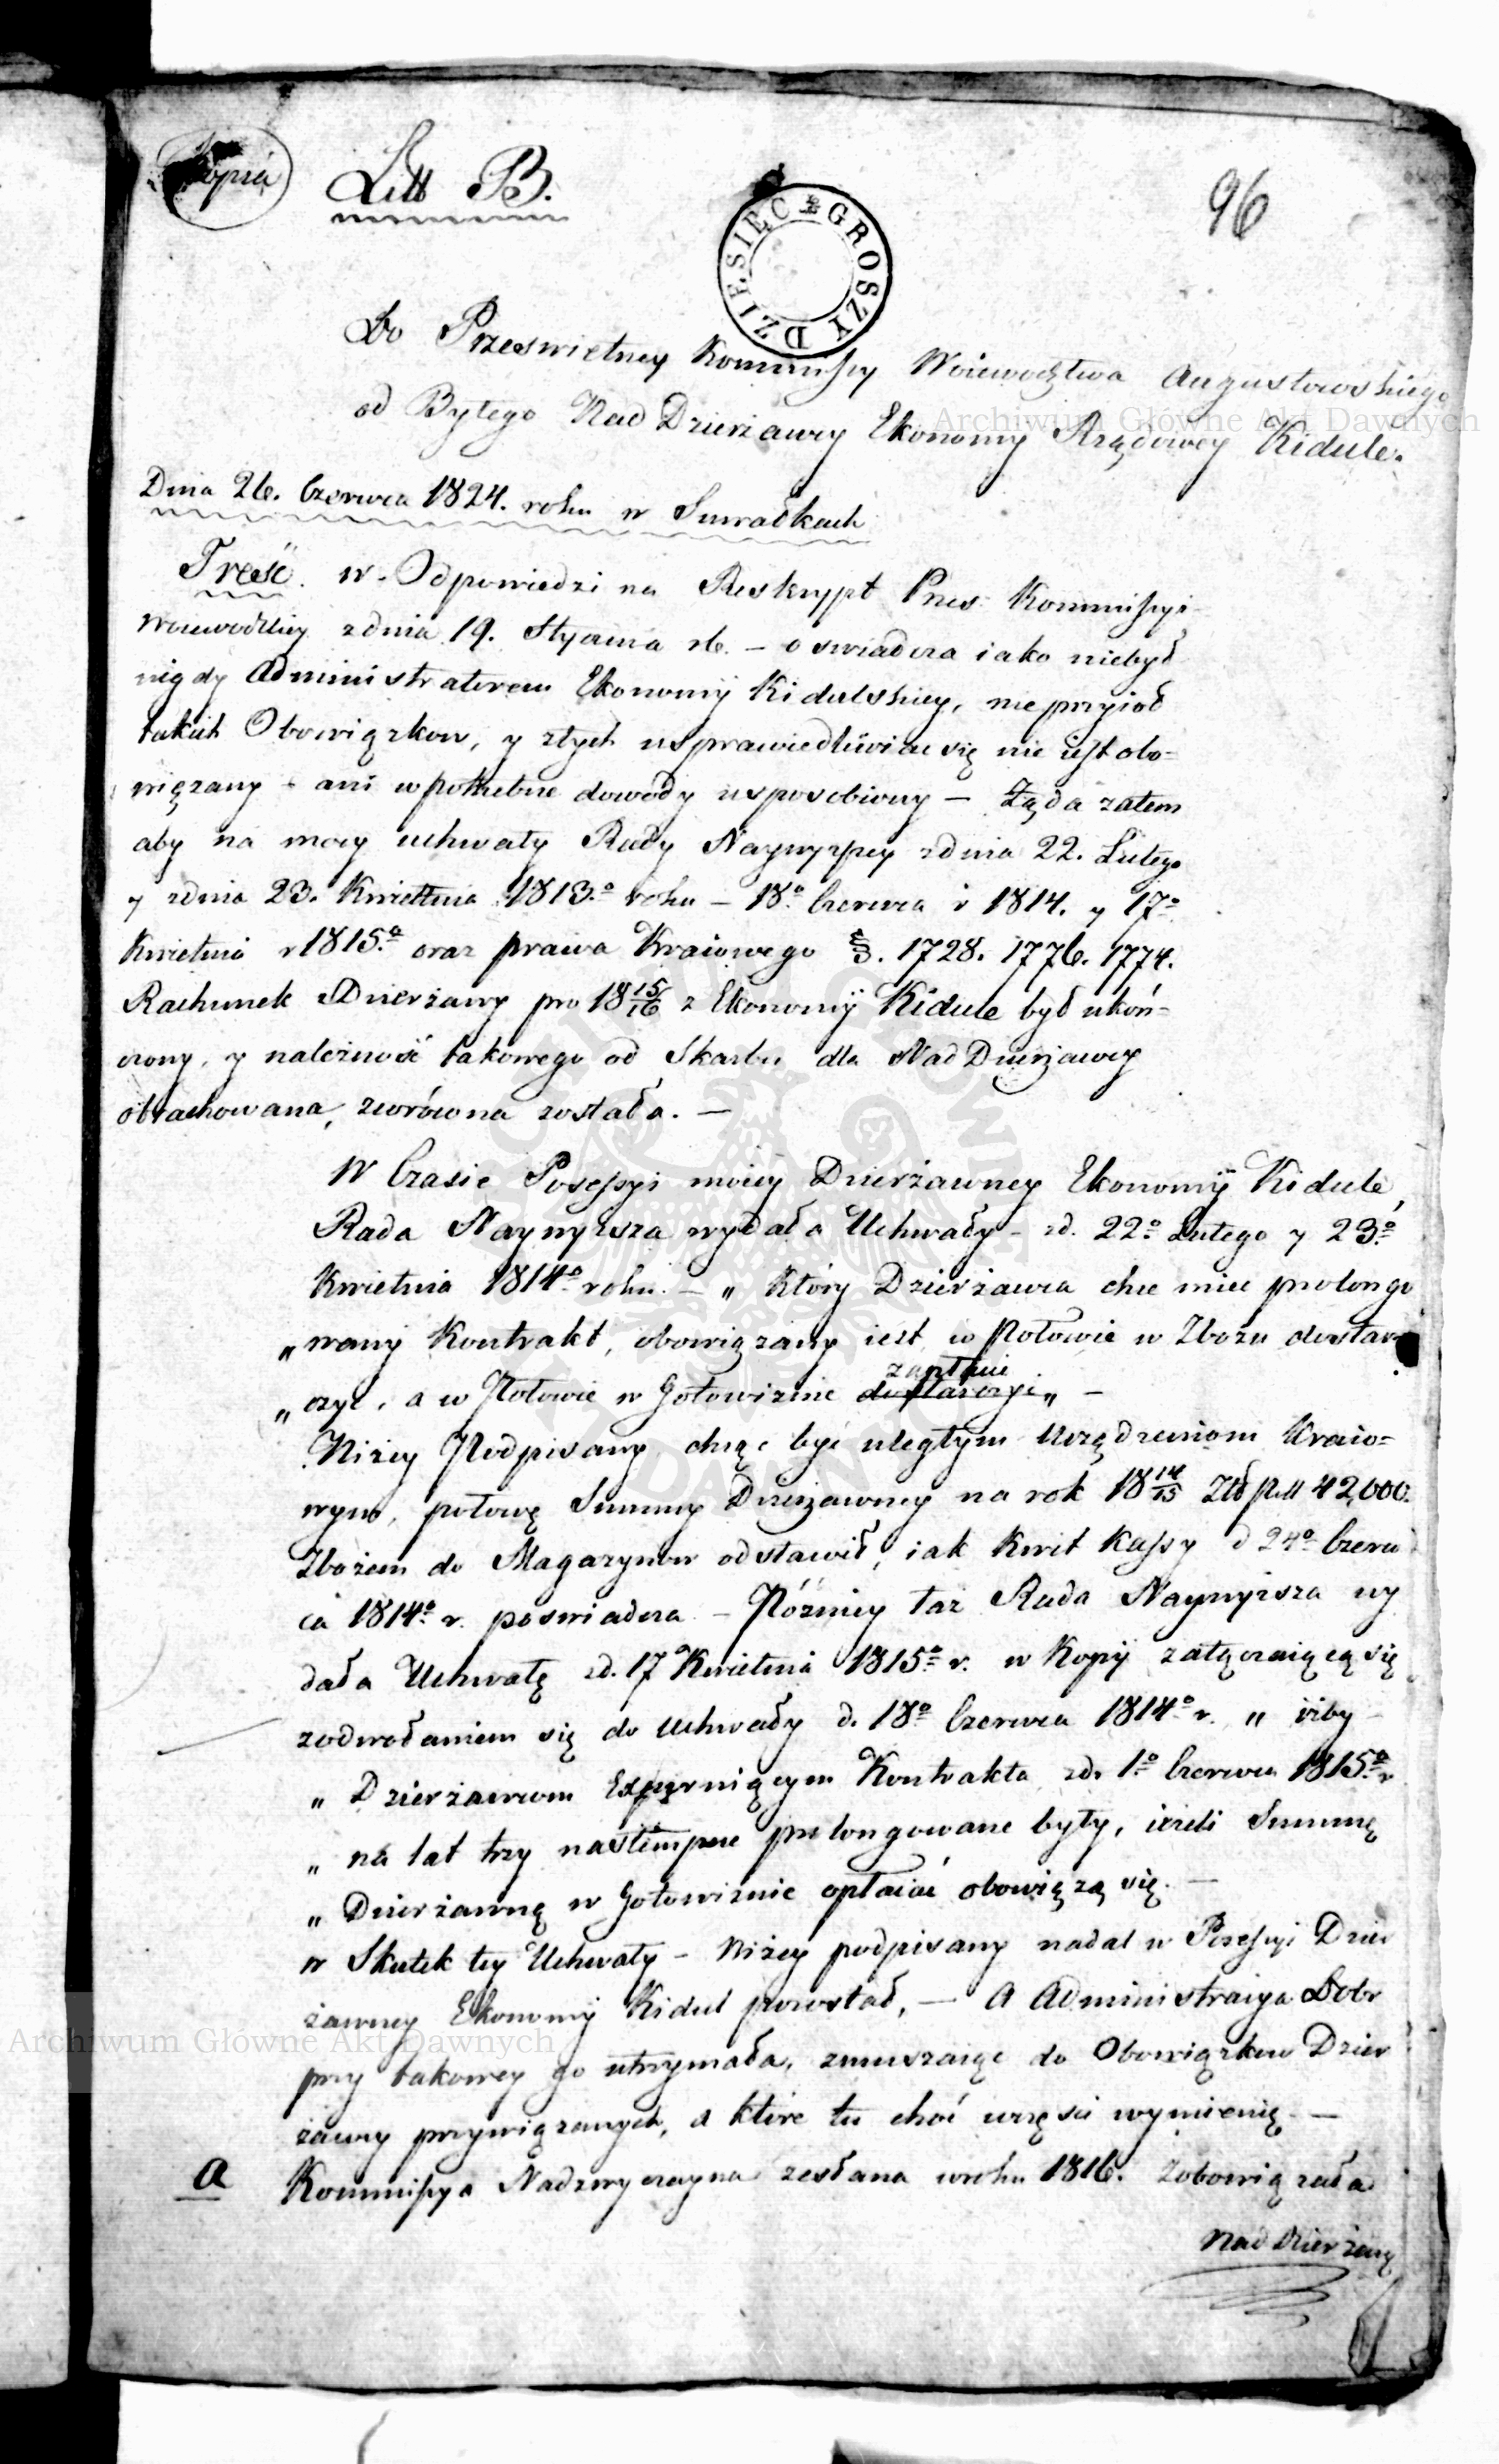 Kopia
Litt B.
96
DZIESIĘC GROSZY
Do Przeswietney Kommissyi Woiewodztwa Augustowskiego
od Byłego Nad Dzierżawcy Ekonomy Rządowey Kidule.
Dnia 26. Czerwca 1824. roku w Suwałkach
Treść. w Odpowiedzi na Reskrypt Prześ: Kommissyi
Woiewodzkiey z dnia 19. Stycznia rb. – oswiadcza iako niebył
nigdy Administratorem Ekonomÿ Kidulskiey, nie przyioł
takich Obowiązkow, y z tych usprawiedliwiać się nie iest obo=
wiązany – ani w potrzebne dowody usposobiony – Żąda zatem
aby na mocy uchwały Rady Naywyższey z dnia 22. Lutego
y z dnia 23. Kwietnia 1813.º roku – 18.º Czerwca r 1814. y 17º
Kwietnia r 1815.º oraz prawa Kraiowego §. 1728. 1776. 1774.
Rachunek Dzierżawy pro 18 15/16 z Ekonomÿ Kidule był ukoń=
czony, y należność takowego od Skarbu dla Nad Dzierżawcy
obrachowana, zwrócona została. –
W Czasie Possessyi moiey Dzierżawney Ekonomÿ Kidule,
Rada Naywyższa wydała Uchwały – z d. 22º Lutego y 23.º
Kwietnia 1814º roku. – „ Który Dzierżawca chce mieć prolongo
„ wany Kontrakt, obowiązany iest w Połowie w Zbożu dostar
„ czyć, a w Połowie w Gotowiznie dostarczyć zapłacić „ –
Niżey Podpisany chcąc być uległym Urządzeniom Kraio=
wym, połowę Summy Dzierżawney na rok 18 14/15 Złł Poll 42,000.
Zbożem do Magazynow odstawił, iak Kwit Kassy d 24º Czerw
ca 1814º r. poswiadcza – Pózniey taż Rada Naywyższa wy
dała Uchwałę z d. 17 Kwietnia 1815º r. w Kopÿ załączaiącą się
z odwołaniem się do Uchwały d. 18º Czerwca 1814º r. „ iżby
„ Dzierżawcom Expirniącym Kontrakta z d. 1º Czerwca 1815º r
„ na lat trzy nastempne prolongowane były, ieżeli Summę
„ Dzierżawną w Gotowiznie opłacać obowiążą się. –
w Skutek tey Uchwały – Niżey podpisany nadal w Possessyi Dzier
żawney Ekonomÿ Kidul pozostał, – A Administracya Dobr
przy takowey go utrzymała, zmuszaiąc do Obowiązkow Dzier
żawcy przywiązanych, a które tu choć w częsci wymienię. –
a Kommissya Nadzwyczayna zesłana w roku 1816. Zobowiązała
Nad Dzierżawcę
Archiwum Główne Akt Dawnych
Archiwum Główne Akt Dawnych